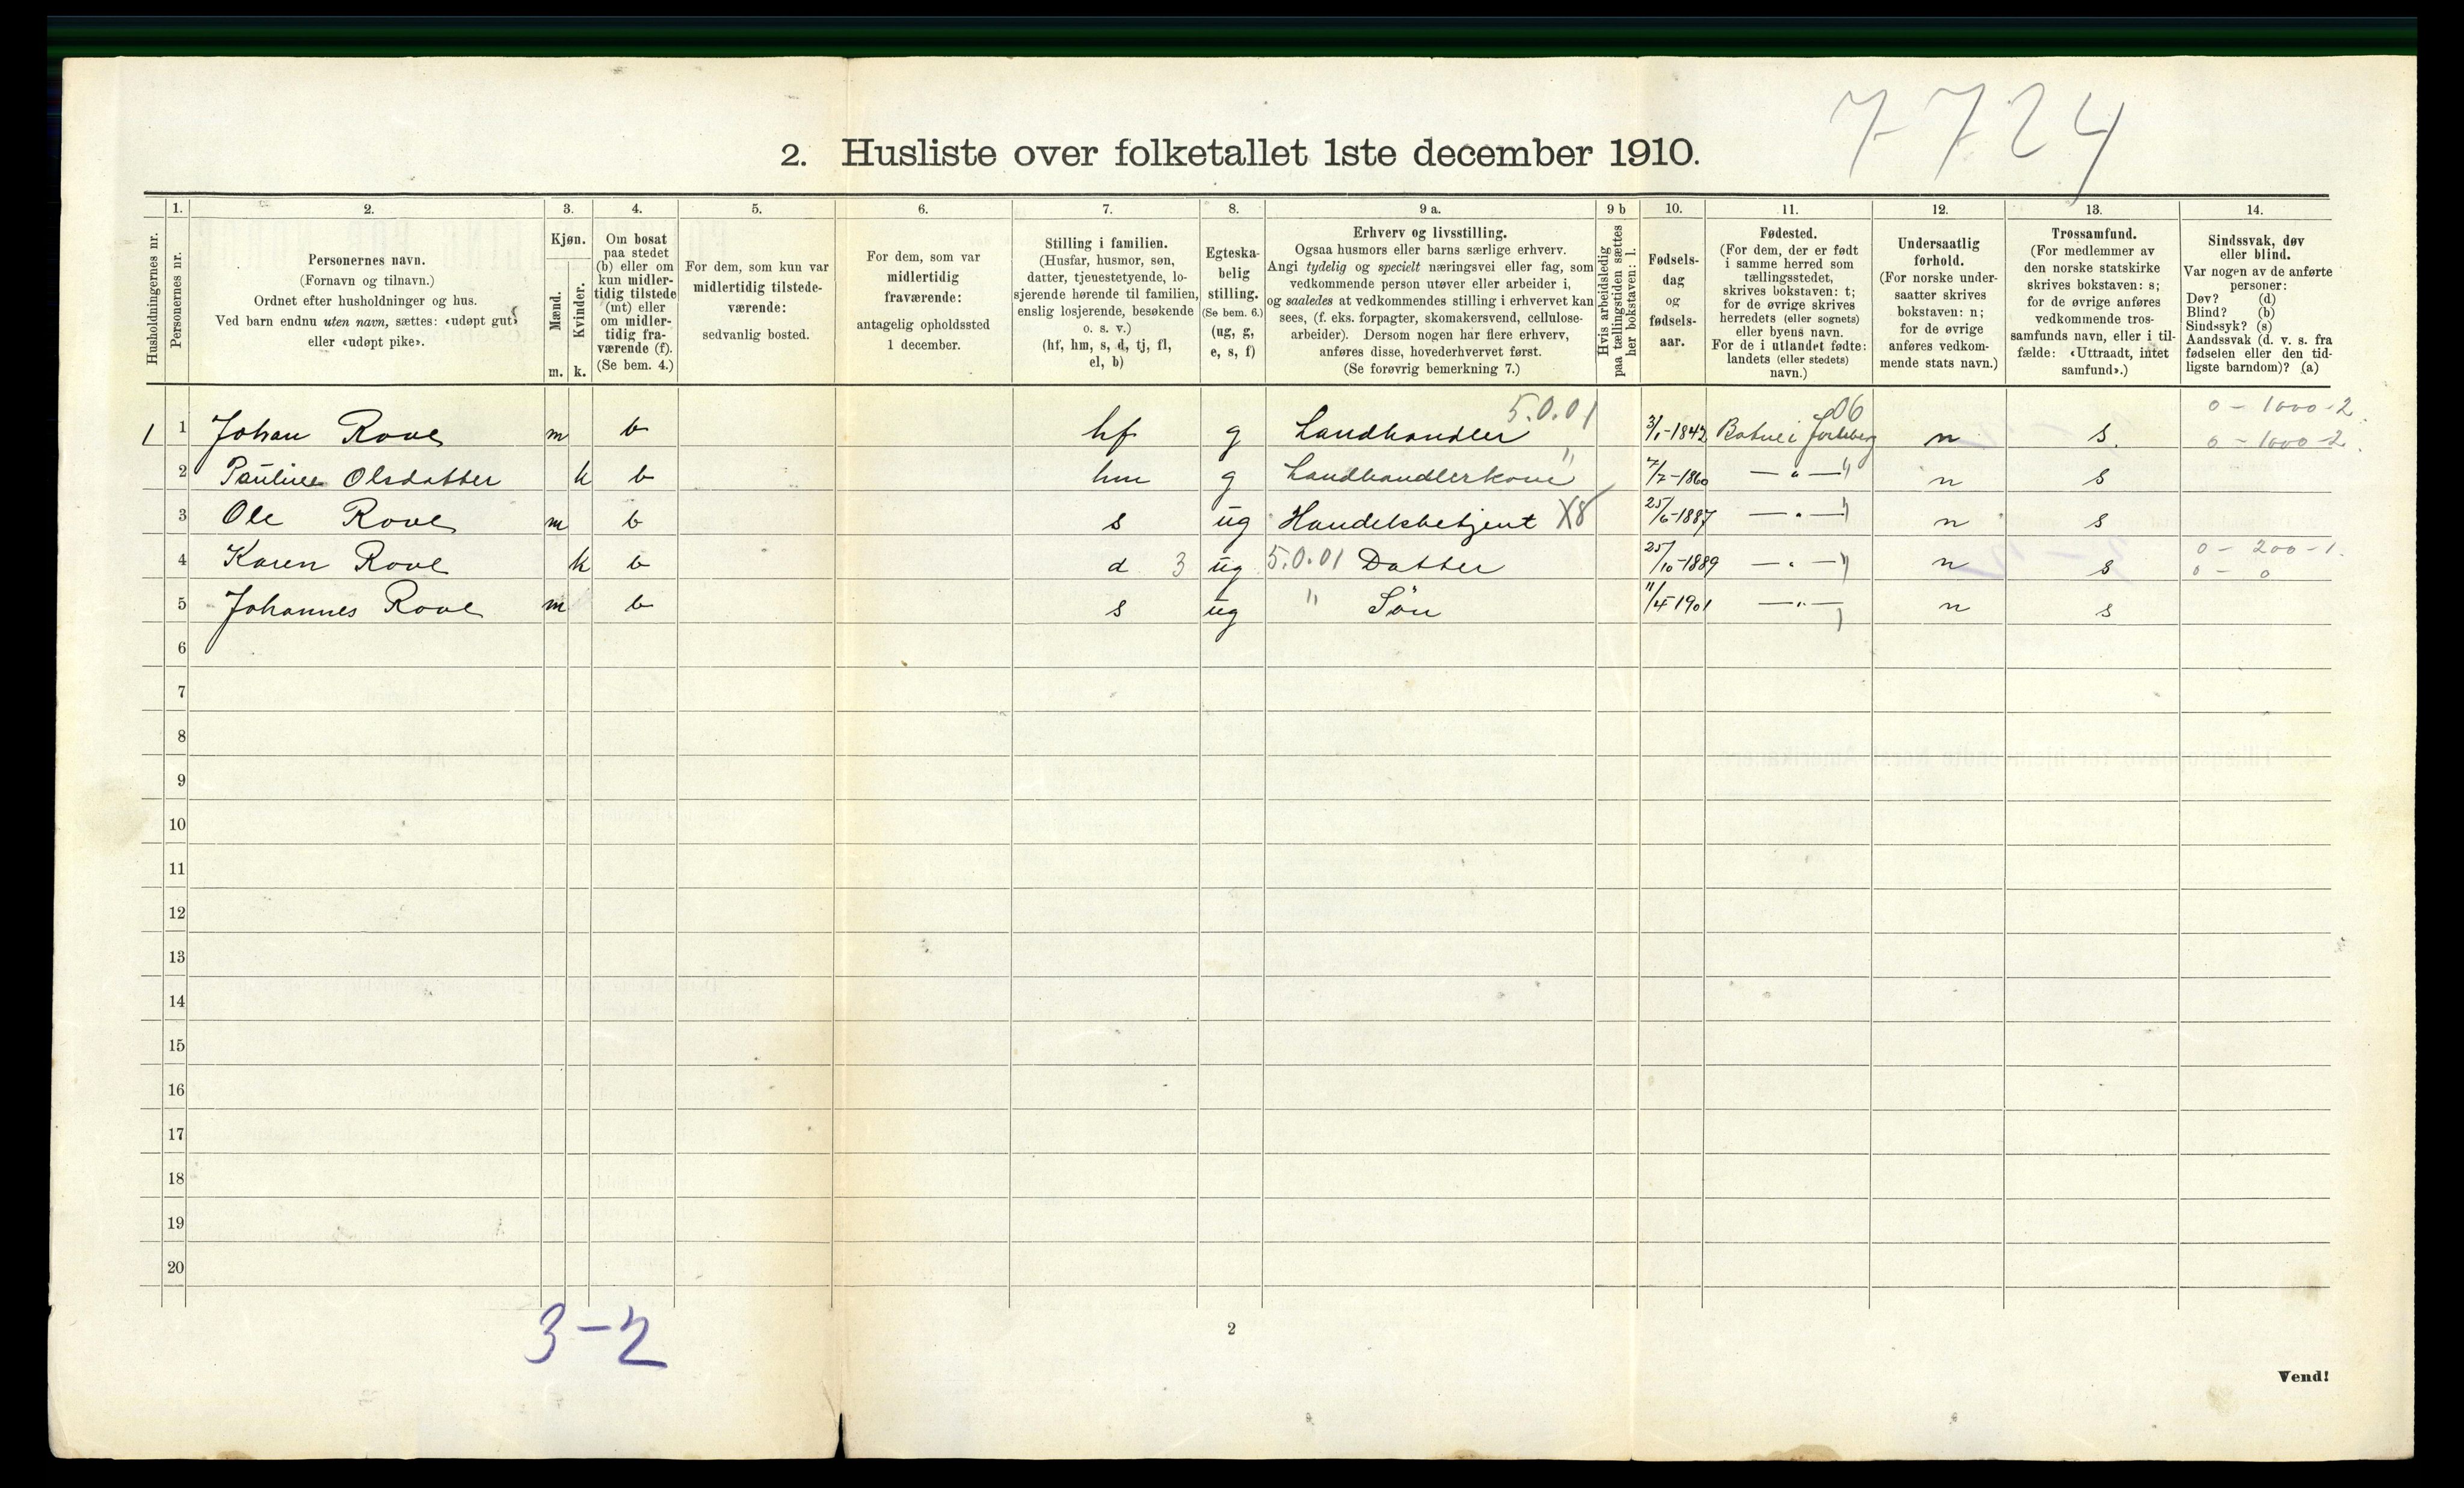 7724
2. Husliste over folketallet 1ste december 1910.
Husholdningernes nr.
1. Personernes nr.
2. Personernes navn.
(Fornavn og tilnavn.)
Ordnet efter husholdninger og hus.
Ved barn endnu uten navn, sættes: «udøpt gut»
eller «udøpt pike».
3. Kjøn.
Mænd. m.
Kvinder. k.
4. Om bosat
paa stedet
(b) eller om
kun midler-
tidig tilstede
(mt) eller
om midler-
tidig fra-
værende (f).
(Se bem. 4.)
5. For dem, som kun var
midlertidig tilstede-
værende:
sedvanlig bosted.
6. For dem, som var
midlertidig
fraværende:
antagelig opholdssted
1 december.
7. Stilling i familien.
(Husfar, husmor, søn,
datter, tjenestetyende, lo-
sjerende hørende til familien,
enslig losjerende, besøkende
o. s. v.)
(hf, hm, s, d, tj, fl,
el, b)
8. Egteska-
belig
stilling.
(Se bem. 6.)
(ug, g,
e, s, f)
9 a. Erhverv og livsstilling.
Ogsaa husmors eller barns særlige erhverv.
Angi tydelig og specielt næringsvei eller fag, som
vedkommende person utøver eller arbeider i,
og saaledes at vedkommendes stilling i erhvervet kan
sees, (f. eks. forpagter, skomakersvend, cellulose-
arbeider). Dersom nogen har flere erhverv,
anføres disse, hovederhvervet først.
(Se forøvrig bemerkning 7.)
9 b Hvis arbeidsledig
paa tællingstiden sættes
her bokstaven: l.
10. Fødsels-
dag
og
fødsels-
aar.
11. Fødested.
(For dem, der er født
i samme herred som
tællingsstedet,
skrives bokstaven: t;
for de øvrige skrives
herredets (eller sognets)
eller byens navn.
For de i utlandet fødte:
landets (eller stedets)
navn.)
12. Undersaatlig
forhold.
(For norske under-
saatter skrives
bokstaven: n;
for de øvrige
anføres vedkom-
mende stats navn.)
13. Trossamfund.
(For medlemmer av
den norske statskirke
skrives bokstaven: s;
for de øvrige anføres
vedkommende tros-
samfunds navn, eller i til-
fælde: «Uttraadt, intet
samfund».)
14. Sindssvak, døv
eller blind.
Var nogen av de anførte
personer:
Døv? (d)
Blind? (b)
Sindssyk? (s)
Aandssvak (d. v. s. fra
fødselen eller den tid-
ligste barndom)? (a)
5.0.01 06 0 - 1000-2
1 1 Johan Rove m b hf g Landhandler 3/1-1842 Botne i n s. 0 - 1000-2.
2 Pauline Olsdatter k b hm g Landhandlerkone " 7/7-1860 — " — n s
3 Ole Rove m b s ug Handelsbetjent X8 25/6-1887 — " — n s
4 Karen Rove k b d 3 ug 5.0.01 Datter 25/10-1889 — " — n s 0 - 200-1. 0 - 0
5 Johannes Rove m b s ug " Søn 11/4-1901 — " — n s
6
7
8
9
10
11
12
13
14
15
16
17
18
19
20
3-2
2
Vend!